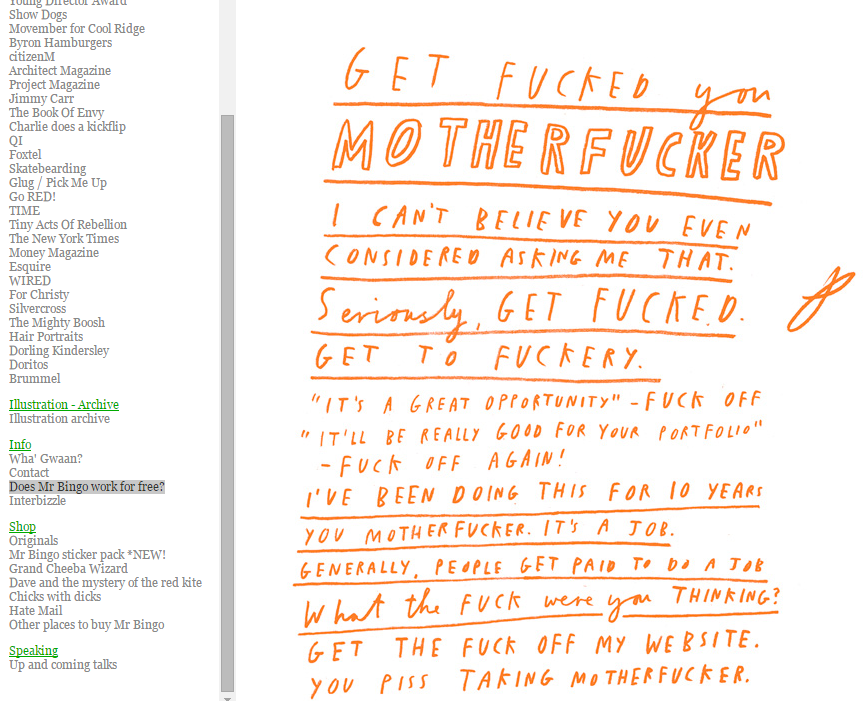 Young Director Award
Show Dogs
Movember for Cool Ridge
Byron Hamburgers
citizenM
Architect Magazine
Project Magazine
Jimmy Carr
The Book Of Envy
Charlie does a kickflip
QI
Foxtel
Skatebearding
Glug / Pick Me Up
Go RED!
TIME
Tiny Acts Of Rebellion
The New York Times
Money Magazine
Esquire
WIRED
For Christy
Silvercross
The Mighty Boosh
Hair Portraits
Dorling Kindersley
Doritos
Brummel
Illustration - Archive
Illustration archive
Info
Wha' Gwaan?
Contact
Does Mr Bingo work for free?
Interbizzle
Shop
Originals
Mr Bingo sticker pack *NEW!
Grand Cheeba Wizard
Dave and the mystery of the red kite
Chicks with dicks
Hate Mail
Other places to buy Mr Bingo
Speaking
Up and coming talks
GET FUCKED you
MOTHERFUCKER
I CAN'T BELIEVE YOU EVEN
CONSIDERED ASKING ME THAT.
Seriously, GET FUCKED.
GET TO FUCKERY.
"IT'S A GREAT OPPORTUNITY" - FUCK OFF
"IT'LL BE REALLY GOOD FOR YOUR PORTFOLIO"
- FUCK OFF AGAIN!
I'VE BEEN DOING THIS FOR 10 YEARS
YOU MOTHERFUCKER. IT'S A JOB.
GENERALLY, PEOPLE GET PAID TO DO A JOB
What the FUCK were you THINKING?
GET THE FUCK OFF MY WEBSITE.
YOU PISS TAKING MOTHERFUCKER.